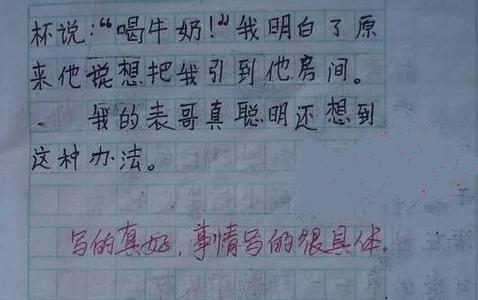 杯说：“喝牛奶！”我明白了原
来他说想把我引到他房间。
我的表哥真聪明还想到
这种办法。
写的真好，事情写的很具体。